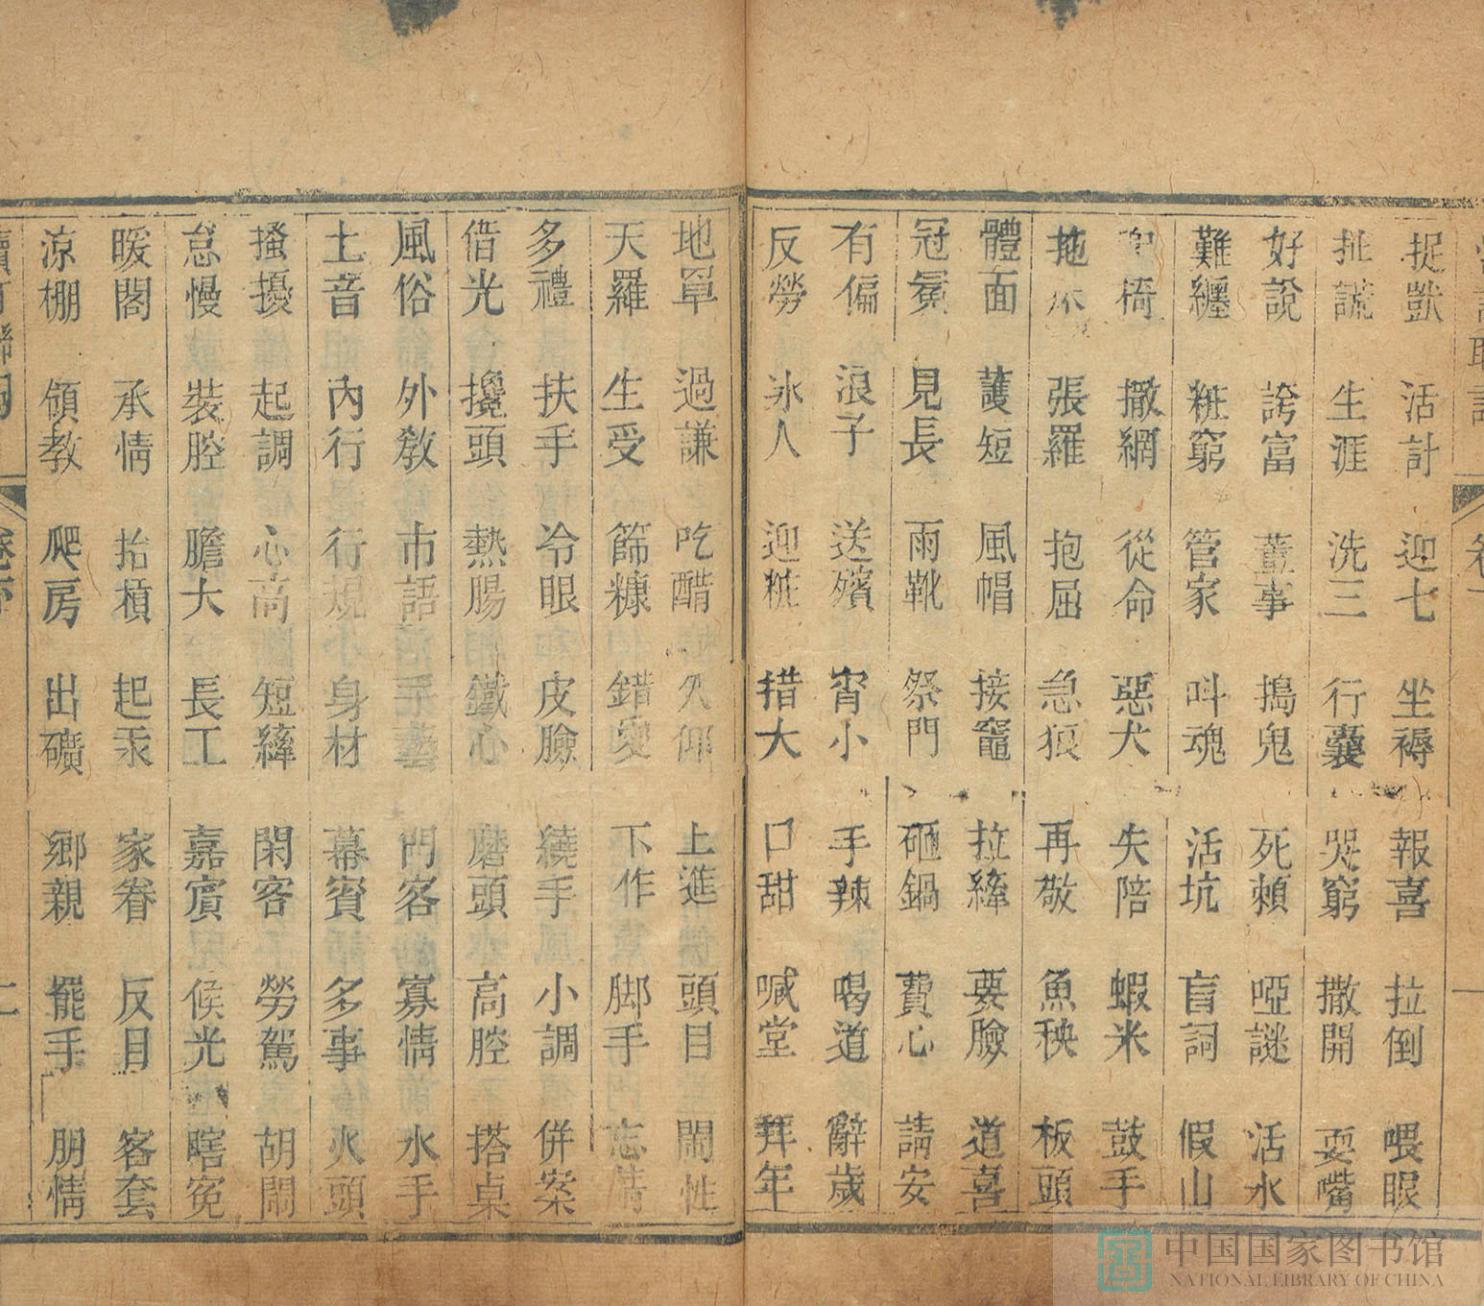 捉獃 活計 迎七 坐褥 報喜 拉倒 喂眼
扯謊 生涯 洗三 行囊 哭窮 撒開 耍嘴
好說 誇富 董事 搗鬼 死賴 啞謎 活水
難纏 粧窮 管家 叫魂 活坑 盲詞 假山
撒網 從命 惡犬 失陪 蝦米 鼓手
張羅 抱屈 急狼 再敬 魚秧 板頭
體面 護短 風帽 接竈 拉縴 要臉 道喜
冠冕 見長 雨靴 祭門 砸鍋 費心 請安
有偏 浪子 送殯 宵小 手辣 喝道 辭歲
反勞 冰人 迎粧 措大 口甜 喊堂 拜年
地單 過謙 吃醋 久仰 上進 頭目 鬧性
天羅 生受 篩糠 錯愛 下作 脚手 忘情
多禮 扶手 冷眼 皮臉 繞手 小調 併案
借光 攪頭 熱腸 鐵心 磨頭 高腔 搭桌
風俗 外教 市話 毛 門客 寡情 水手
土音 內行 行規 身材 幕賓 多事 火頭
搔擾 起調 心高 短縴 閑客 勞駕 胡鬧
怠慢 裝腔 膽大 長工 嘉賓 候光 瞎
暖閣 承情 抬槓 起汞 家眷 反目 客套
涼棚 領教 爬房 出礦 鄉親 擺手 朋情
中国国家图书馆
NATIONAL LIBRARY OF CHINA